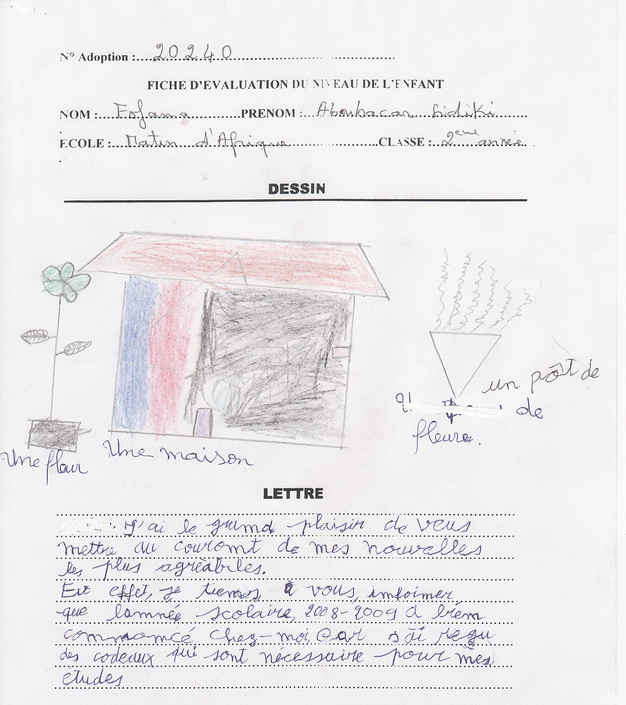 N° Adoption : 20240
FICHE D'EVALUATION DU NIVEAU DE L'ENFANT
NOM : Fofana PRENOM : Aboubacar Sidiki
ECOLE : Matin d'Afrique CLASSE : 2eme année
DESSIN
un pôt de
de
fleure.
Une fleur Une maison
LETTRE
J'ai le grand plaisir de veus
mettre au couromt de mes nouvelles
les plus agréabiles.
En effet, je tiems à vous imformer
que lamnée scolaire, 2008-2009 a bien
commamcé chez-moi, Car s'ai reçu
des codeaux qui sont nécessaire pour mes
etudes